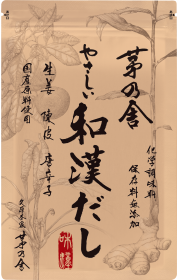 茅乃舎
やさしい
和漢だし
生姜 陳皮 唐辛子
国産原料使用
化学調味料
保存料無添加
久原本家
茅乃舎